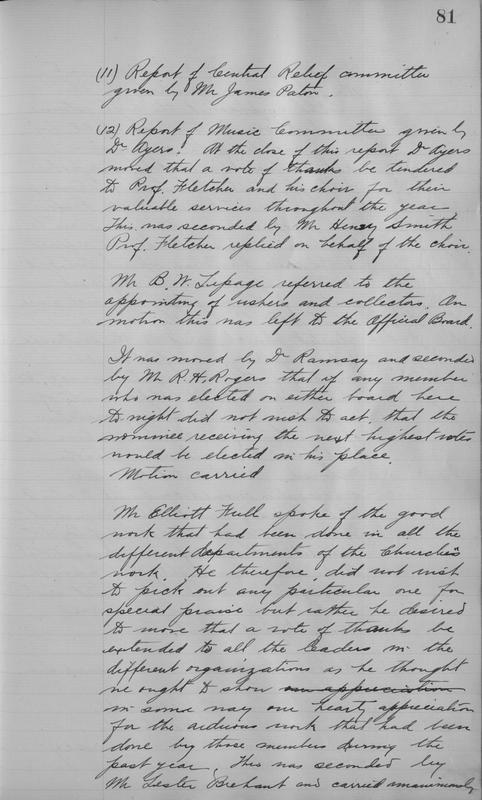 81
(11) Report of Central Relief committee
given by Mr James Paton.
(12) Report of Music Committee given by
Dr Ayers. At the close of this report Dr Ayers
moved that a vote of thanks be tendered
to Prof. Fletcher and his choir for their
valuable services throughout the year
This was seconded by Mr Henry Smith
Prof. Fletcher replied on behalf of the choir.
Mr B. W. Lepage referred to the
appointing of ushers and collectors. On
motion this was left to the Official Board.
It was moved by Dr Ramsay and seconded
by Mr R. H. Rogers that if any member
who was elected on either board here
to night did not wish to act, that the
nominee receiving the next highest votes
would be elected in his place.
Motion carried
Mr Elliott Hull spoke of the good
work that had been done in all the
different departments of the Church's
work. He therefore, did not wish
to pick out any particular one for
special praise but rather he desired
to move that a vote of thanks be
extended to all the leaders in the
different organizations as he thought
we ought to show our appreciation
in some way our hearty appreciation
for the arduous work that had been
done by those members during the
past year. This was seconded by
Mr Lester Brehaut and carried unanimously